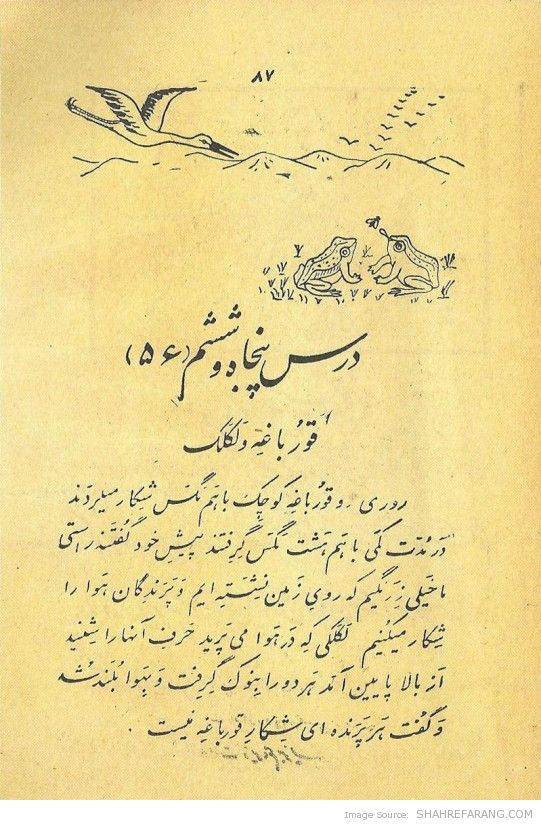 ۸۷
درس پنجاه و ششم (۵۶)
قورباغه و لکلک
روزی دو قورباغهٔ کوچک باهم مگس شکار میکردند
در مُدّت کمی باهم هشت مگس گرفتند پیشِ خود گفتند راستی
ما خیلی زرنگیم که رویِ زمین نشسته ایم و پرندگان هوا را
شکار میکنیم لکلکی که در هوا می پرید حرفِ آنها را شنید
از بالا پایین آمد هر دو را بنوک گرفت و بهوا بلند شد
و گفت هر پرنده ای شکارِ قورباغه نیست .
Image Source: SHAHREFARANG.COM